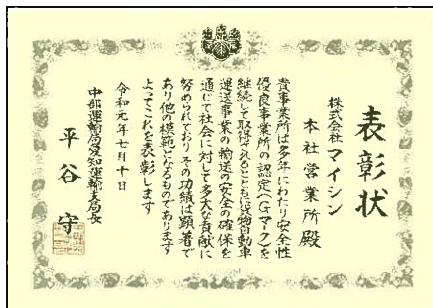 表彰状
株式会社マイシン
本社営業所殿
貴事業所は多年にわたり安全性
優良事業所の認定(Gマーク)を
継続して取得されるとともに貨物自動車
運送事業の輸送の安全の確保を
通じて社会に対して多大な貢献に
努められておりその功績は顕著で
あり他の模範となるものであります
よってこれを表彰します
令和元年七月十日
中部運輸局愛知運輸支局長
平谷守